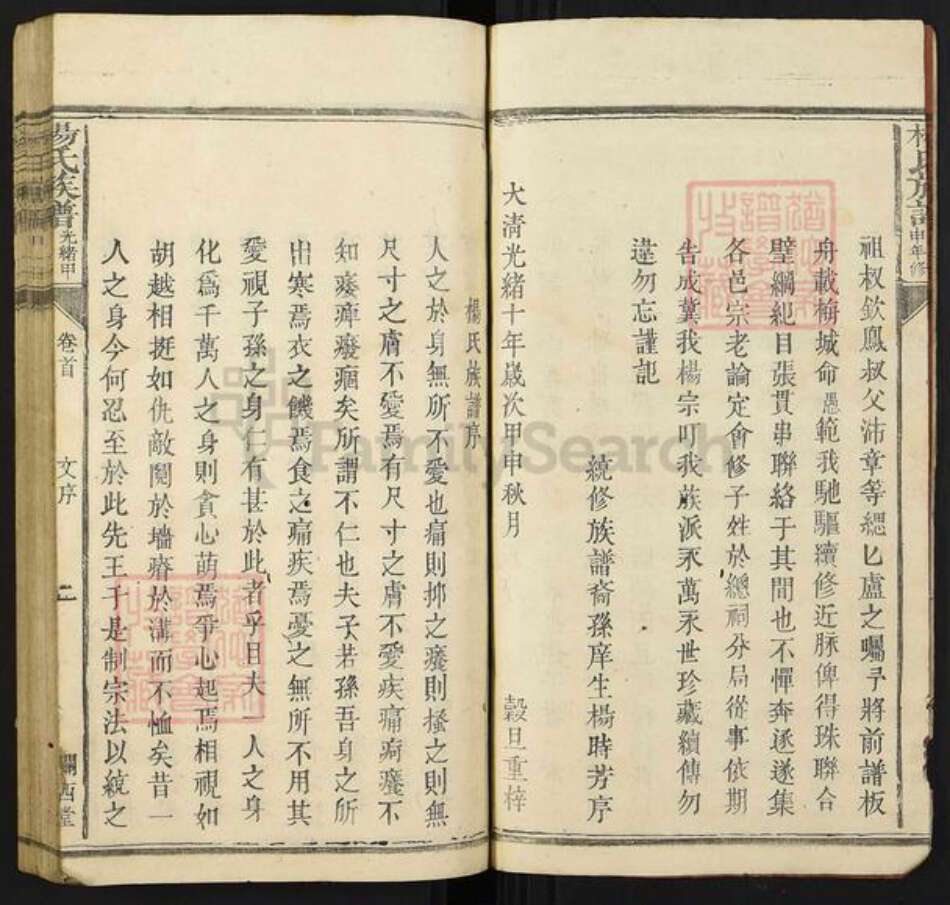 楊氏族譜 申年修
祖叔欽鳳叔父沛章等緦匕盧之囑予將前譜板
舟載梅城命愚範我馳驅續修近脉俾得珠聯合
璧綱紀目張貫串聯絡于其間也不憚奔逐遂集
各邑宗老論定會修子姓於總祠分局從事依期
告成冀我楊宗叮我蔟派永萬永世珍藏續傳勿
違勿忘謹記
統修族譜裔孫庠生楊時芳序
大清光緒十年歲次甲申秋月 穀旦重梓
楊氏族譜序
人之於身無所不愛也痛則抑之癢則搔之則無
尺寸之膚不愛焉有尺寸之膚不愛疾痛疴癢不
知痿痺癈痼矣所謂不仁也夫子若孫吾身之所
出寒焉衣之饑焉食之痛疾焉憂之無所不用其
愛視子孫之身仁有甚於此者乎且夫一人之身
化爲千萬人之身則貪心萌焉爭心起焉相視如
胡越相挺如仇敵鬩於墻瘠於溝而不恤矣昔一
人之身今何忍至於此先王于是制宗法以統之
楊氏族譜 光緒甲 卷首 文序 二 關西堂
FamilySearch